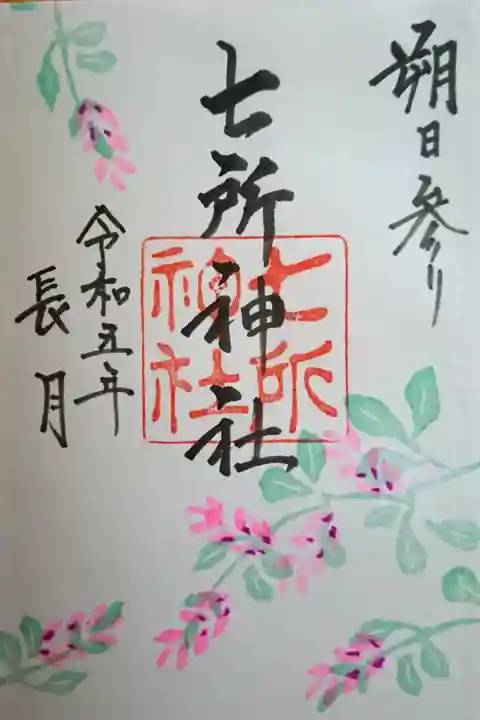 朔日参り
七所神社
七所
神社
令和五年
長月